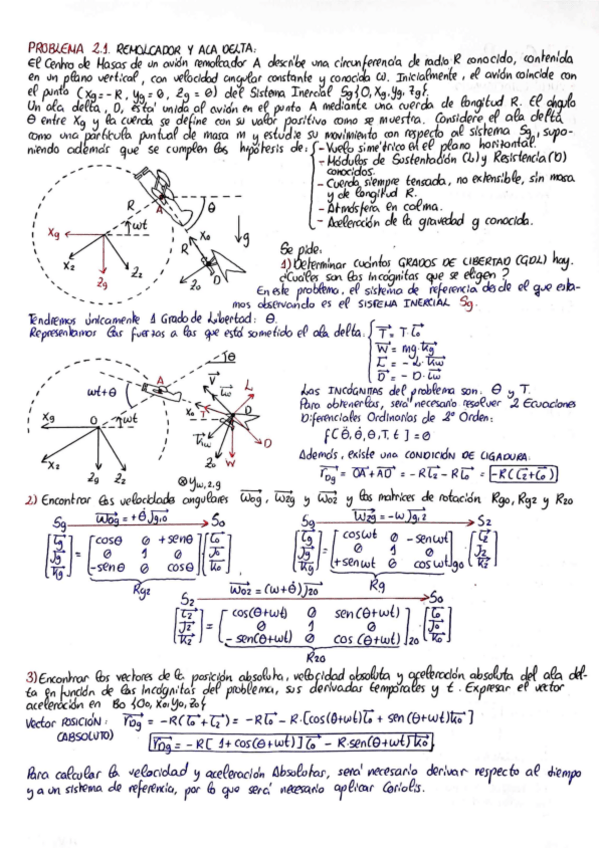 PROBLEMA 2.1. REMOLCADOR Y ALA DELTA:
El Centro de Masas de un avión remolcador A describe una circunferencia de radio R conocido, contenida
en un plano vertical, con velocidad angular constante y conocida ω. Inicialmente, el avión coincide con
el punto (xg = -R, yg = 0, zg = 0) del Sistema Inercial Sg{O, xg, yg, zg}.
Un ala delta, D, está unida al avión en el punto A mediante una cuerda de longitud R. El ángulo
θ entre xg y la cuerda se define con su valor positivo como se muestra. Considere el ala delta
como una partícula puntual de masa m y estudie su movimiento con respecto al sistema Sg, supo-
niendo además que se cumplen las hipótesis de:
- Vuelo simétrico en el plano horizontal.
- Módulos de Sustentación (L) y Resistencia (D)
conocidos.
- Cuerda siempre tensada, no extensible, sin masa
y de longitud R.
- Atmósfera en calma.
- Aceleración de la gravedad g conocida.
A
R
θ
xg
ωt
x0
g
R
D
x2
zg
z2
z0
Se pide:
1) Determinar cuántos GRADOS DE LIBERTAD (GDL) hay.
¿Cuáles son las incógnitas que se eligen?
En este problema, el sistema de referencia desde el que esta-
mos observando es el SISTEMA INERCIAL Sg.
Tendremos únicamente 1 Grado de Libertad: θ.
Representamos las fuerzas a las que está sometido el ala delta:
T = T·i0
W = mg·kg
L = -L·kw
D = -D·iw
θ
ωt+θ
A
V
iw
L
xg
O
ωt
x0
T
D
kw
D
x2
zg
z2
z0
W
yw,2,g
Las INCÓGNITAS del problema son: θ y T.
Para obtenerlas, será necesario resolver 2 Ecuaciones
Diferenciales Ordinarias de 2º Orden:
f[θ̈, θ̇, θ, T, t] = 0
Además, existe una CONDICIÓN DE LIGADURA:
rDg = OA + AD = -Ri2 - Ri0 = -R(i2+i0)
2) Encontrar las velocidades angulares ω0g, ω2g y ω02 y las matrices de rotación Rg0, Rg2 y R20
Sg ω0g = +θ̇jg,0 S0
[ig jg kg] = [cosθ 0 +senθ; 0 1 0; -senθ 0 cosθ] [i0 j0 k0]
Rg2
Sg ω2g = -ωjg,2 S2
[ig jg kg] = [cosωt 0 -senωt; 0 1 0; +senωt 0 cosωt]g0 · [i2 j2 k2]
Rg
S2 ω02 = (ω+θ̇)j20 S0
[i2 j2 k2] = [cos(θ+ωt) 0 sen(θ+ωt); 0 1 0; -sen(θ+ωt) 0 cos(θ+ωt)]20 [i0 j0 k0]
R20
3) Encontrar los vectores de la posición absoluta, velocidad absoluta y aceleración absoluta del ala del-
ta en función de las incógnitas del problema, sus derivadas temporales y t. Expresar el vector
aceleración en B0 {O0, x0, y0, z0}
Vector POSICIÓN: rDg = -R(i0 + i2) = -Ri0 - R·[cos(θ+ωt)i0 + sen(θ+ωt)k0]
(ABSOLUTO) rDg = -R[1+cos(θ+ωt)]i0 - R·sen(θ+ωt)k0
Para calcular la velocidad y aceleración Absolutas, será necesario derivar respecto al tiempo
y a un sistema de referencia, por lo que será necesario aplicar Coriolis.